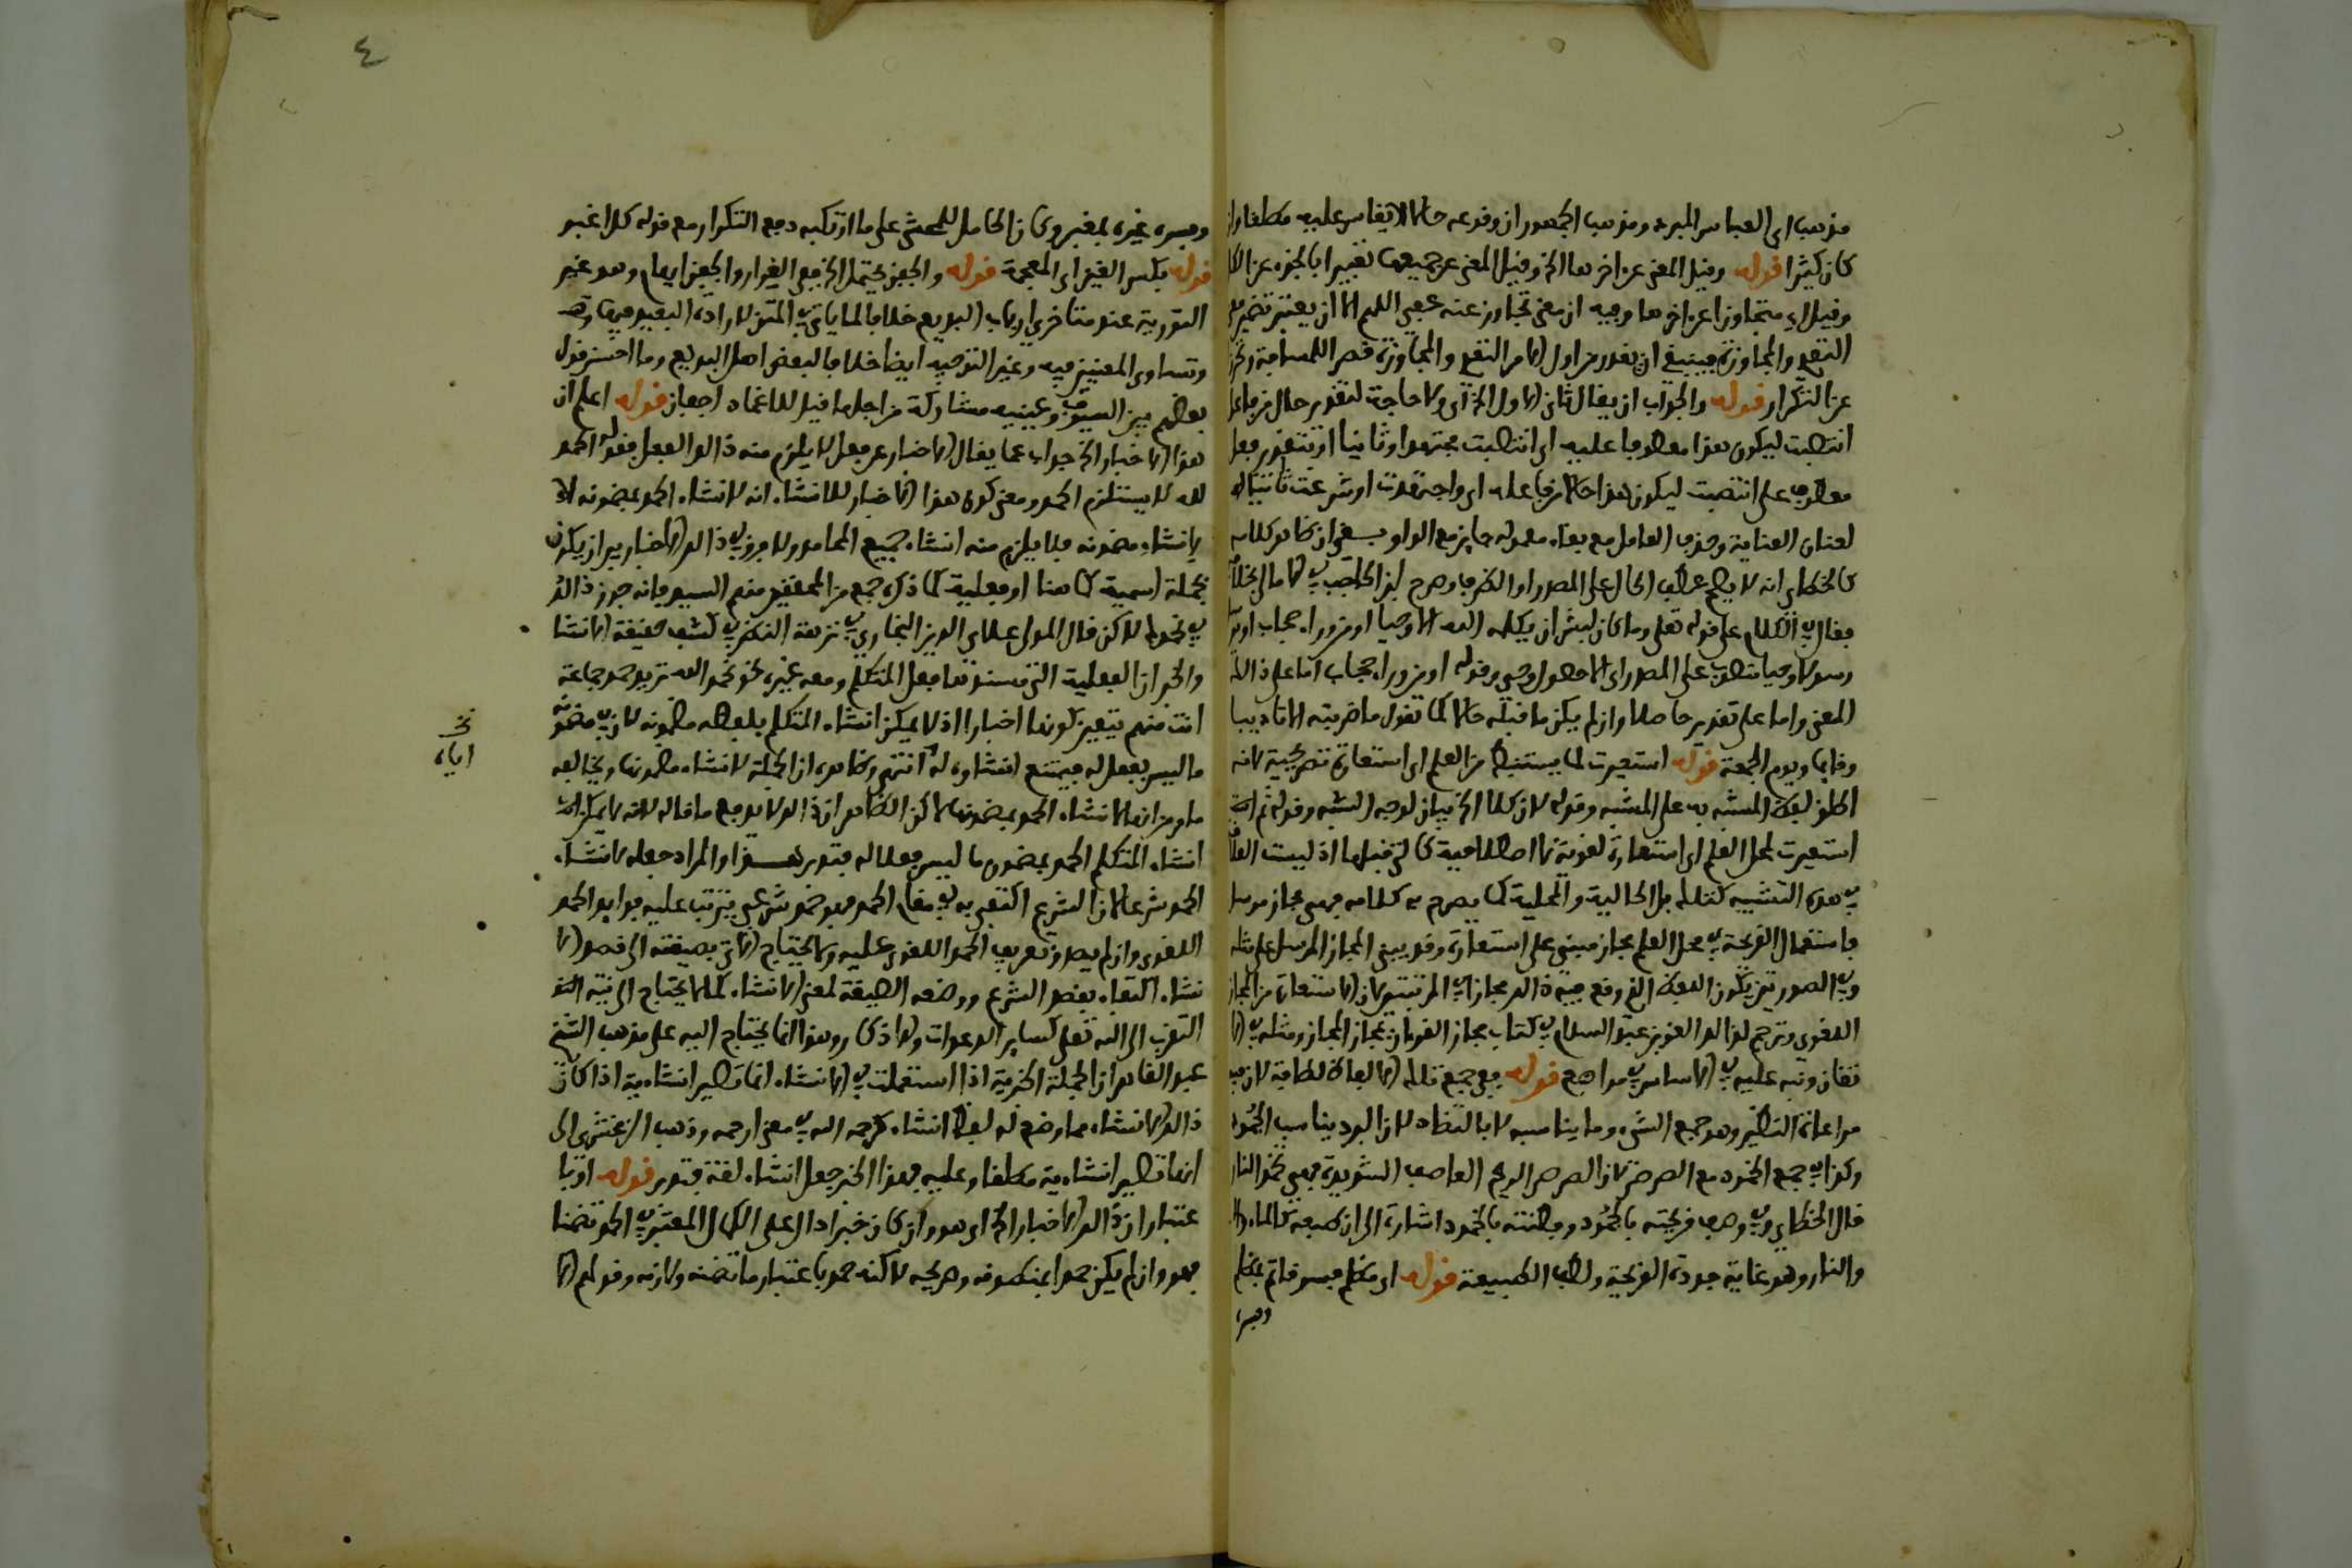 مذهب ابى العباس المبرد ومذهب الجمهور ان وقوعه حالا لا يقاس عليه مطلقا وان
كان كثيرا قوله وقيل المعنى عن اخرها الخ وقيل المعنى عن جميعها تعبيرا بالجزء عن الكل
وقيل اى متجاوزا عن اخرها وفيه ان معنى تجاوز عنه عفى اللهم الا ان يعتبر تضمين
التعدى والمجاوزة فينبغى ان يقدر من اول الامر التعدى والمجاوزة قصر اللمسافة وتحرزا
عن التكرار قوله والجواب ان يقال ثان الاول الخ اى ولا حاجة لتقدير حال من فاعل
انتصبت ليكون هذا معطوفا عليه اى انتصبت مجتهدا وثانيا او بتقدير فعل
معطوف على انتصبت ليكون هذا حالا من فاعله اى واجتهدت او شرعت ثانيا
لعنان العناية وحذف العامل مع بقاء معموله جائز مع الواو بقى ان ظاهر كلامه
كالخطابى انه لا يصح عطف الحال على المصدر او الظرف وصرح ابن الحاجب فى الامالى بخلافه
فقال فى الكلام على قوله تعلى وما كان لبشر ان يكلمه الله الا وحيا او من وراء حجاب او يرسل
رسولا وحيا منصوب على المصدر اى الا حصول وحى وقوله او من وراء حجاب اما على ذالك
المعنى واما على تقدير حاصلا وان لم يكن ما قبله حالا كما تقول ما ضربته الا تاديبا
وقايما ويوم الجمعة قوله استعيرت لما يستنبط من العلم اى استعارة تصريحية لانه
اطلق لفظ المشبه به على المشبه وقوله لان كلا الخ بيان لوجه الشبه وقوله ثم
استعيرت لمحل العلم اى استعارة لغوية لا اصطلاحية كالتى قبلها اذ ليست العلاقة
فى هذه التشبيه كتلك بل الحالية والمحلية كما يصرح به كلامه فهى مجاز مرسل
فاستعمال القريحة فى محل العلم مجاز مبنى على استعارة وقد يبنى المجاز المرسل على مثله
وفى الصورتين يكون اللفظ الذى وقع فيه ذالك مجازا فى المرتبتين لان الاستعارة من المجاز
اللغوى وترجم لذالك العز بن عبد السلام فى كتاب مجاز القرءان بمجاز المجاز ومثله فى الا
تقان ونبه عليه فى الاساس فى مواضع قوله ففى جمع تلك الالفاظ لطافة لان فيه
مراعاة النظير وهو جمع الشىء وما يناسبه لا بالتضاد لان البرد يناسب الجمود
وكذا فى جمع الخمود مع الصرصر لان الصرصر الريح العاصف الشديدة فهى تخمد النار
قال الخطابى وفى وصف قريحته بالجمود وفطنته بالخمود اشارة الى ان طبعه كالماء
والنار وهو غاية جودة القريحة ولطف الطبيعة قوله اى مظلم فيه قاتم بمظلم
وفسره
٤
وفسره غيره بمغبر وكان الحامل للمحشى على ما ارتكبه دفع التكرار مع قوله كل اغبر
قوله بكسر الغين اى المعجمة قوله والجفن يحتمل الخ ففى الغرار والجفن ايهام وهو غير
التورية عند متاخرى ارباب البديع خلافا لما ياتى فى المتن لارادة البعيد فيها
وتساوى المعنيين فيه وغير التوجيه ايضا خلافا لبعض اهل البديع وما احسن قول
بعضهم بين السيوف وعينيه مشاركة من اجلها قيل للاغماد اجفان قوله اعلم ان
هذا الاخبار الخ جواب عما يقال الاخبار عن فعل لا يلزم منه ذالك الفعل فقوله الحمد
لله لا يستلزم الحمد ومعنى كون هذا الاخبار للانشاء انه لانشاء الحمد بمضمونه لا
لانشاء مضمونه فلا يلزم منه انشاء جميع المحامد ولا فرق فى ذالك الاخبار بين ان يكون
بجملة اسمية كما هنا او فعلية كما ذكره جمع من المحققين منهم السيد فانه جوز ذالك
فى نحوها لاكن قال المولى علاء الدين البخارى فى نزهة النظر فى كشف حقيقة الانشا
والخبر ان الفعلية التى مسندها فعل المتكلم ومعه غيره نحو نحمد الله تريد حمد جماعة
انت منهم يتعين كونها اخبارا اذ لا يمكن انشاء المتكلم بلفظه مضمونه لان فى مضمونه
ما ليس بفعل له فيمتنع انشاؤه له انتهى وظاهره ان الجملة لانشاء مضمونها ويخالفه
ما مر من انها لانشاء الحمد بمضمونها لاكن الظاهر ان ذالك لا يدفع ما قاله لانه لا يمكن
انشاء المتكلم الحمد بمضمون ما ليس فعلا له فتدبر هذا والمراد جعله لانشاء
الحمد شرعا لان الشرع اكتفى به فى مقام الحمد فهو حمد شرعى يترتب عليه فوايد الحمد
اللغوى وان لم يصدق تعريف الحمد اللغوى عليه ولا يحتاج الاتى بصيغته الى قصد الا
نشاء اكتفاء بقصد الشرع ووضعه الصيغة لمعنى الانشاء كما لا يحتاج الى نية
التقرب الى الله تعلى كساير الدعوات والاذكار وهذا انما يحتاج اليه على مذهب الشيخ
عبد القاهر ان الجملة الخبرية اذا استعملت فى الانشاء انما تصير انشاءية اذا كان
ذالك الانشاء مما وضع له لفظ انشاء كرحمه الله فى معنى ارحمه وذهب الزمخشرى الى
انها تصير انشاءية مطلقا وعليه فهذا الخبر جعل انشاء لغة فتدبر قوله او با
عتبار ان ذالك الاخبار الخ اى هو وان كان خبرا دال على الكمال المعتبر فى الحمد تضمنا
فهو وان لم يكن حمدا بمنطوقه وصريحه لاكنه حمد باعتبار ما تضمنه ولازمه وقولهم الا
نخ
اياه